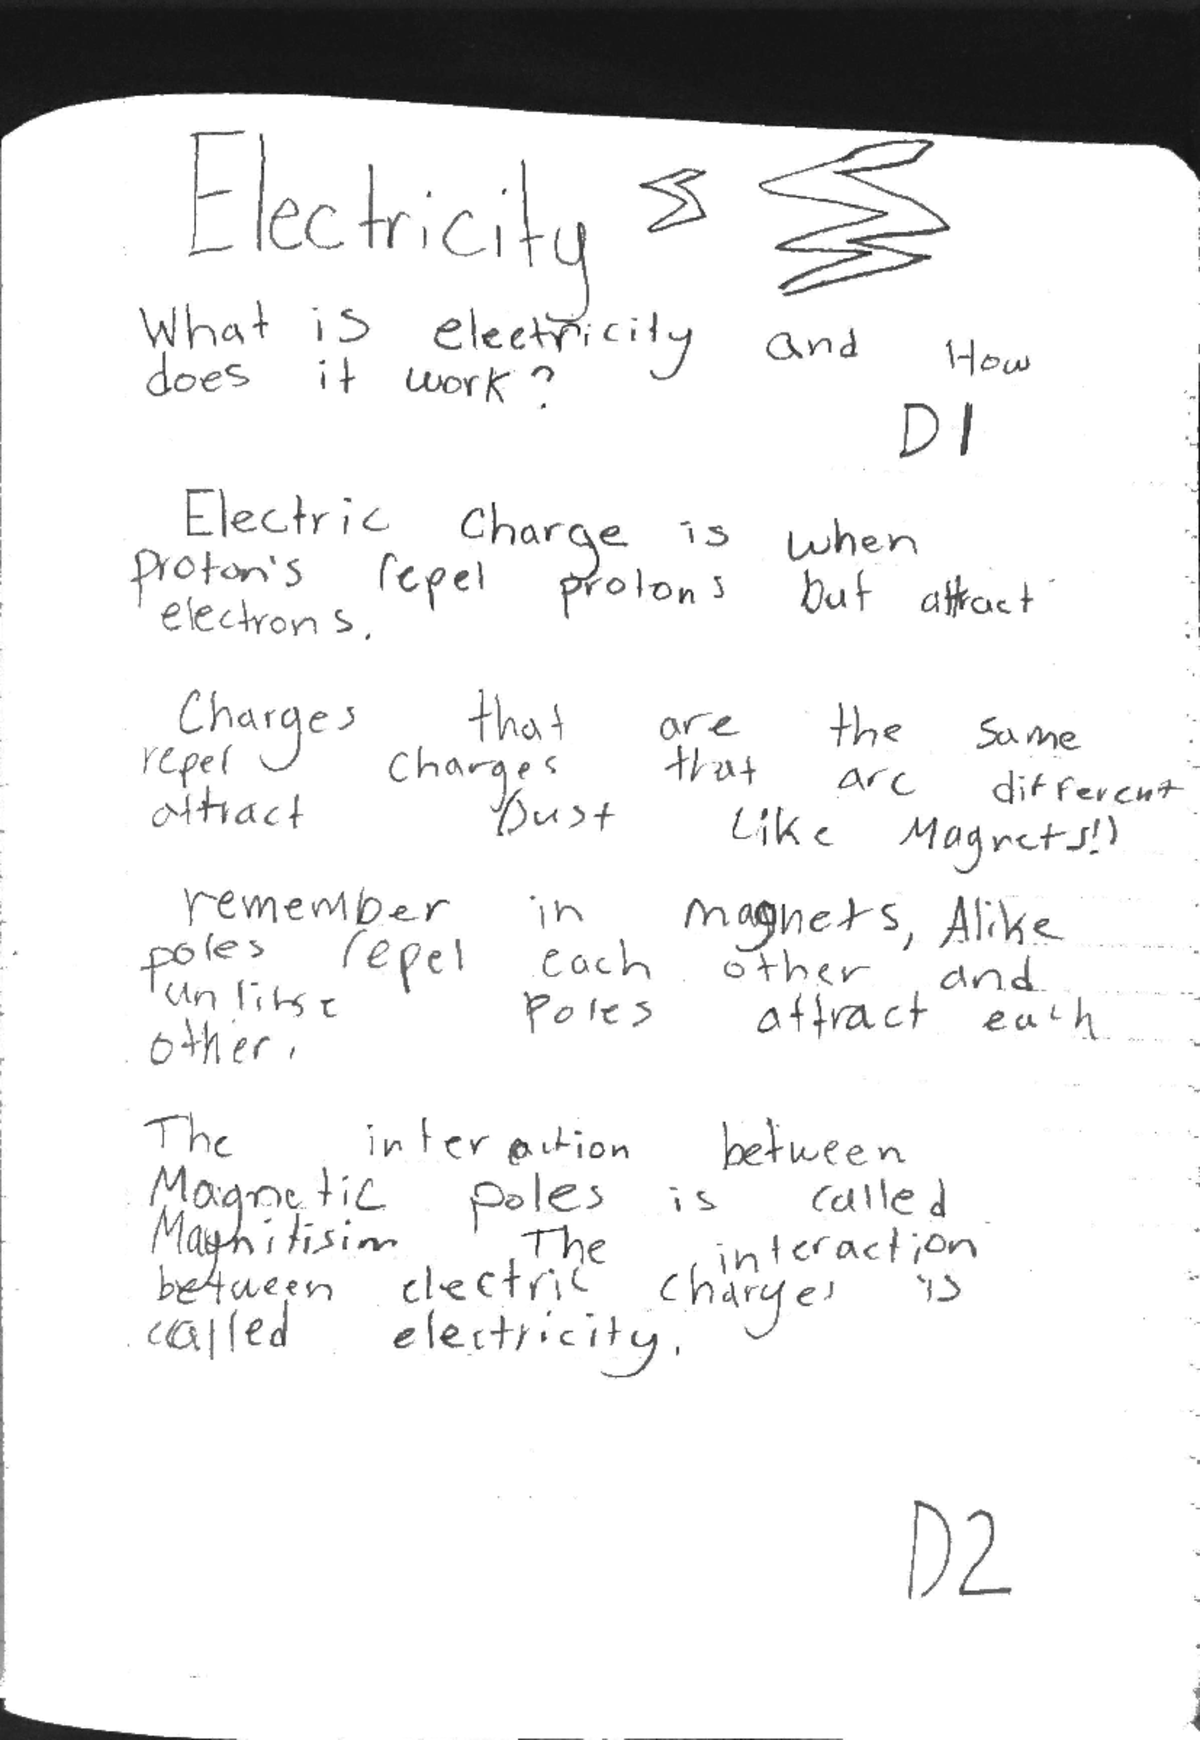 Electricity
What is electricity and How
does it work?
D1
Electric Charge is when
proton's repel protons but attract
electrons.
Charges that are the same
repel charges that are different
attract Just Like Magnets!)
remember in magnets, Alike
poles repel each other and
unlike poles attract each
other.
The interaction between
Magnetic poles is called
Magnitisim The interaction
between electric charges is
called electricity.
D2